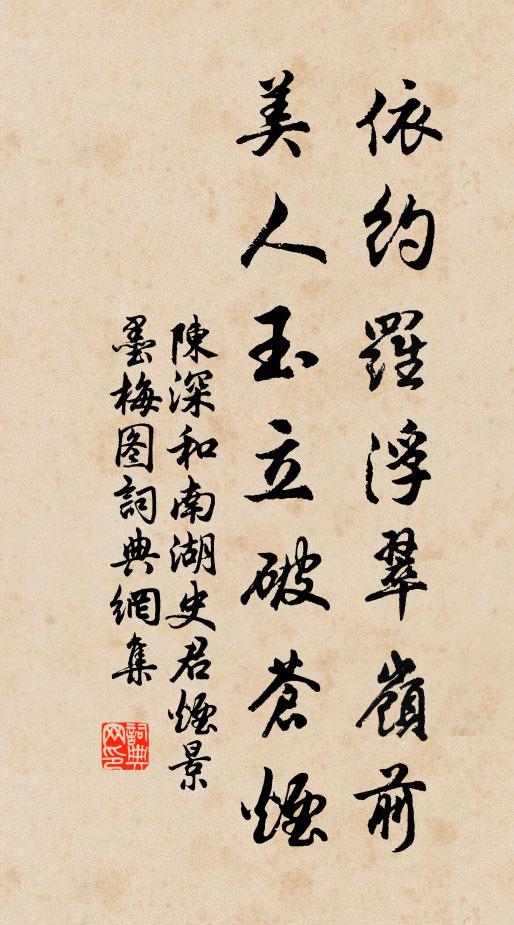 依約羅浮翠嶺前
美人玉立破蒼煙
陳深和南湖史君煙景
墨梅图詞典網集
詞典网印